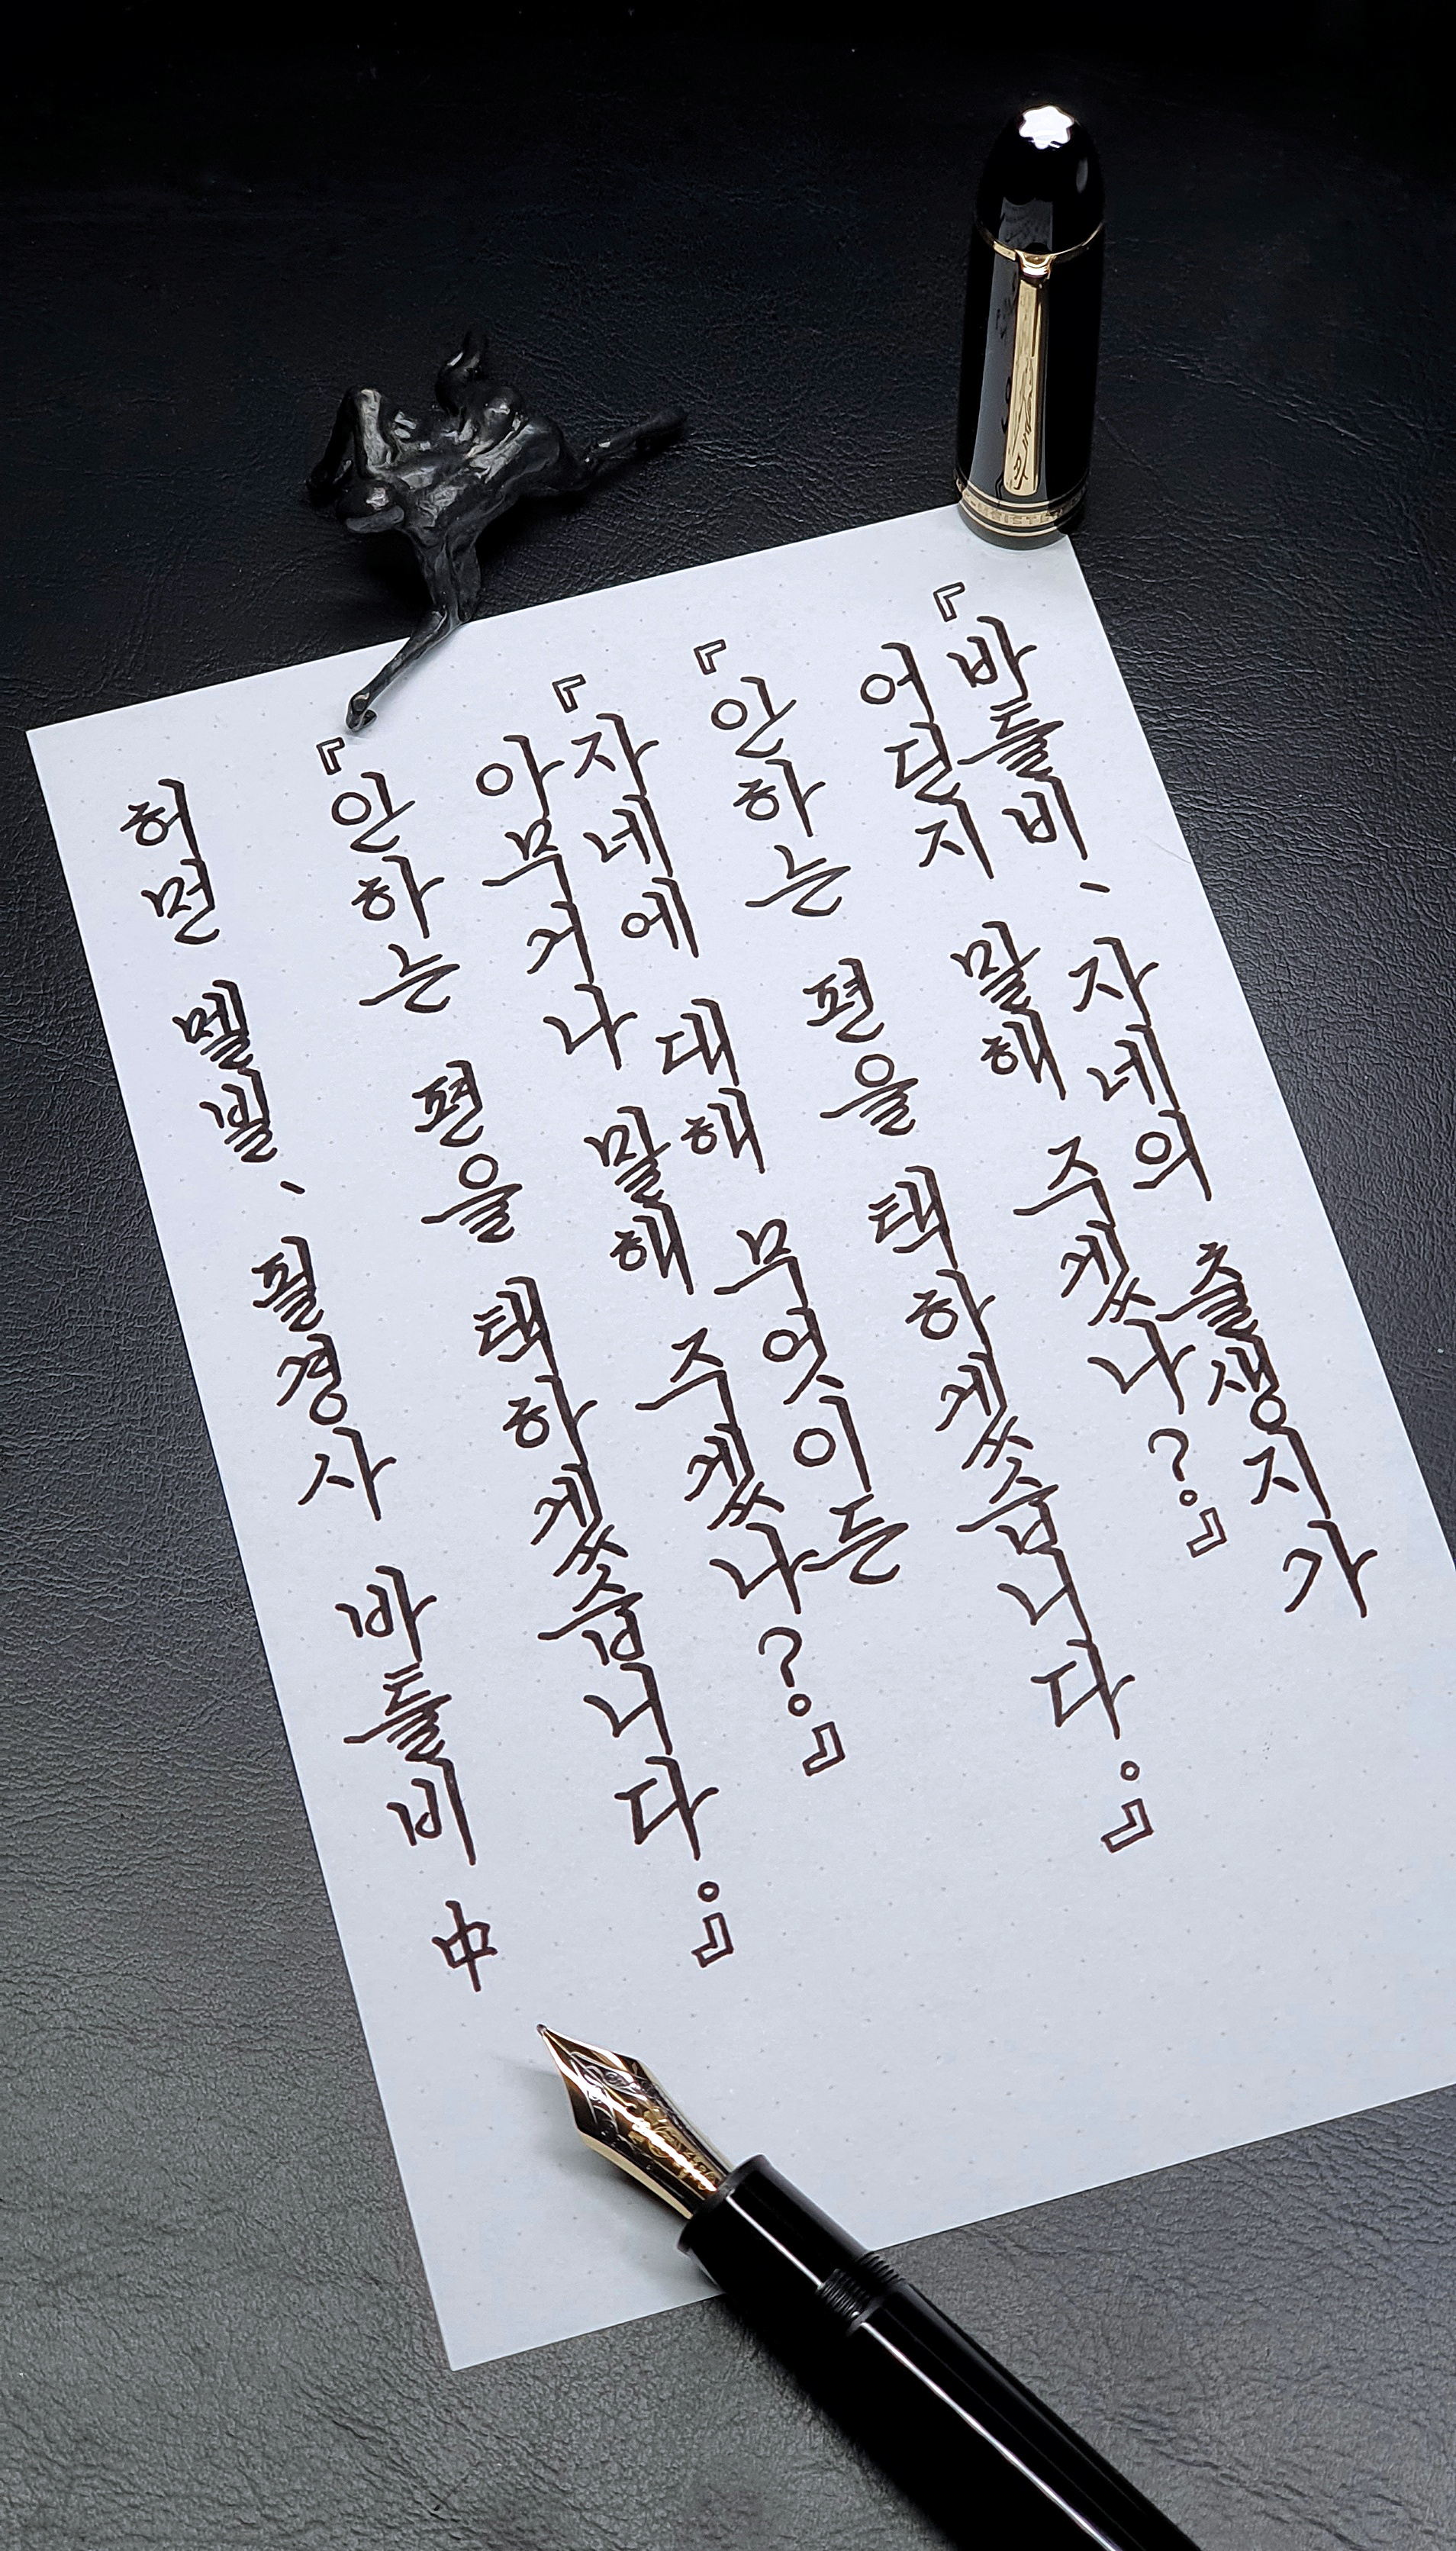 『바틀비、자네의 출생지가
어딘지 말해 주겠나?。』
『안하는 편을 택하겠습니다。』
『자네에 대해 무엇이든
아무거나 말해 주겠나?。』
『안하는 편을 택하겠습니다。』
허먼 멜빌、필경사 바틀비 中